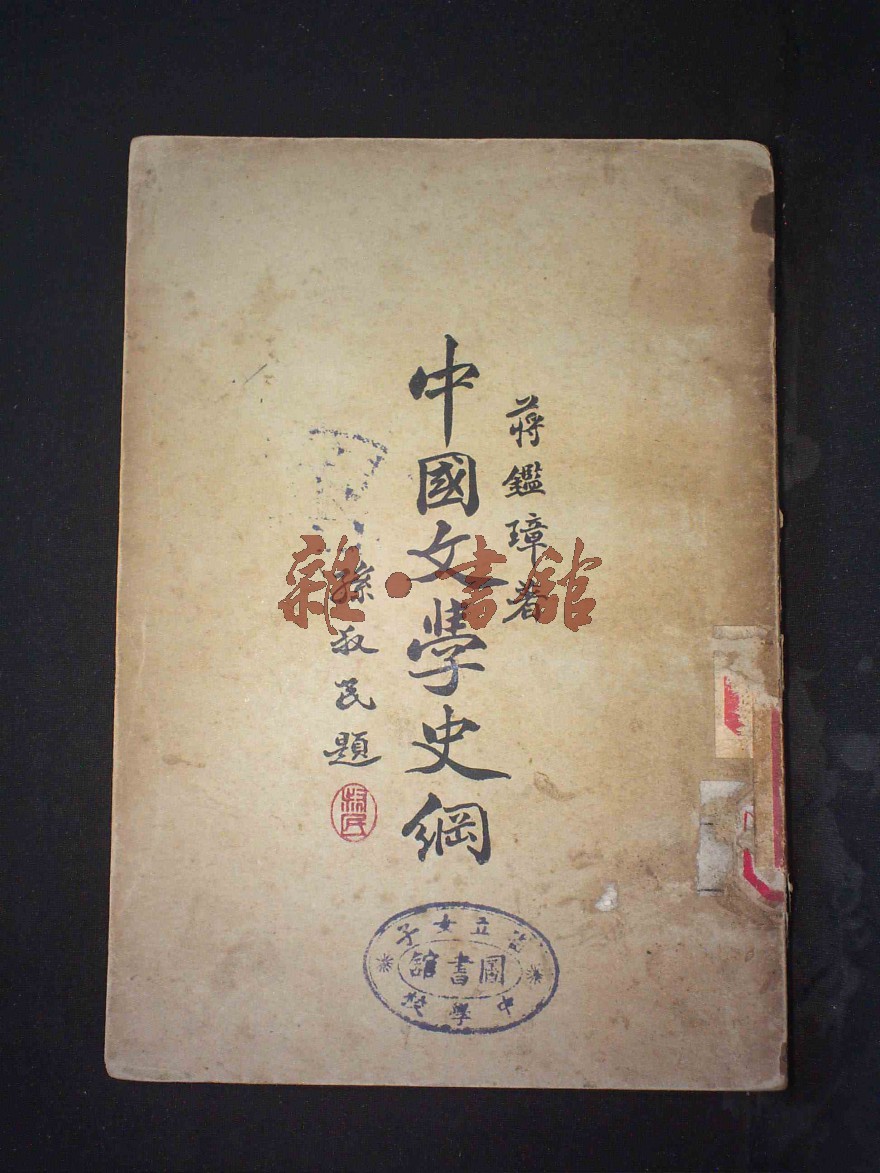 蔣鑑璋著
中國文學史綱
孫叔民題
叔民
立女子
圖書館
中學校
雜·書館